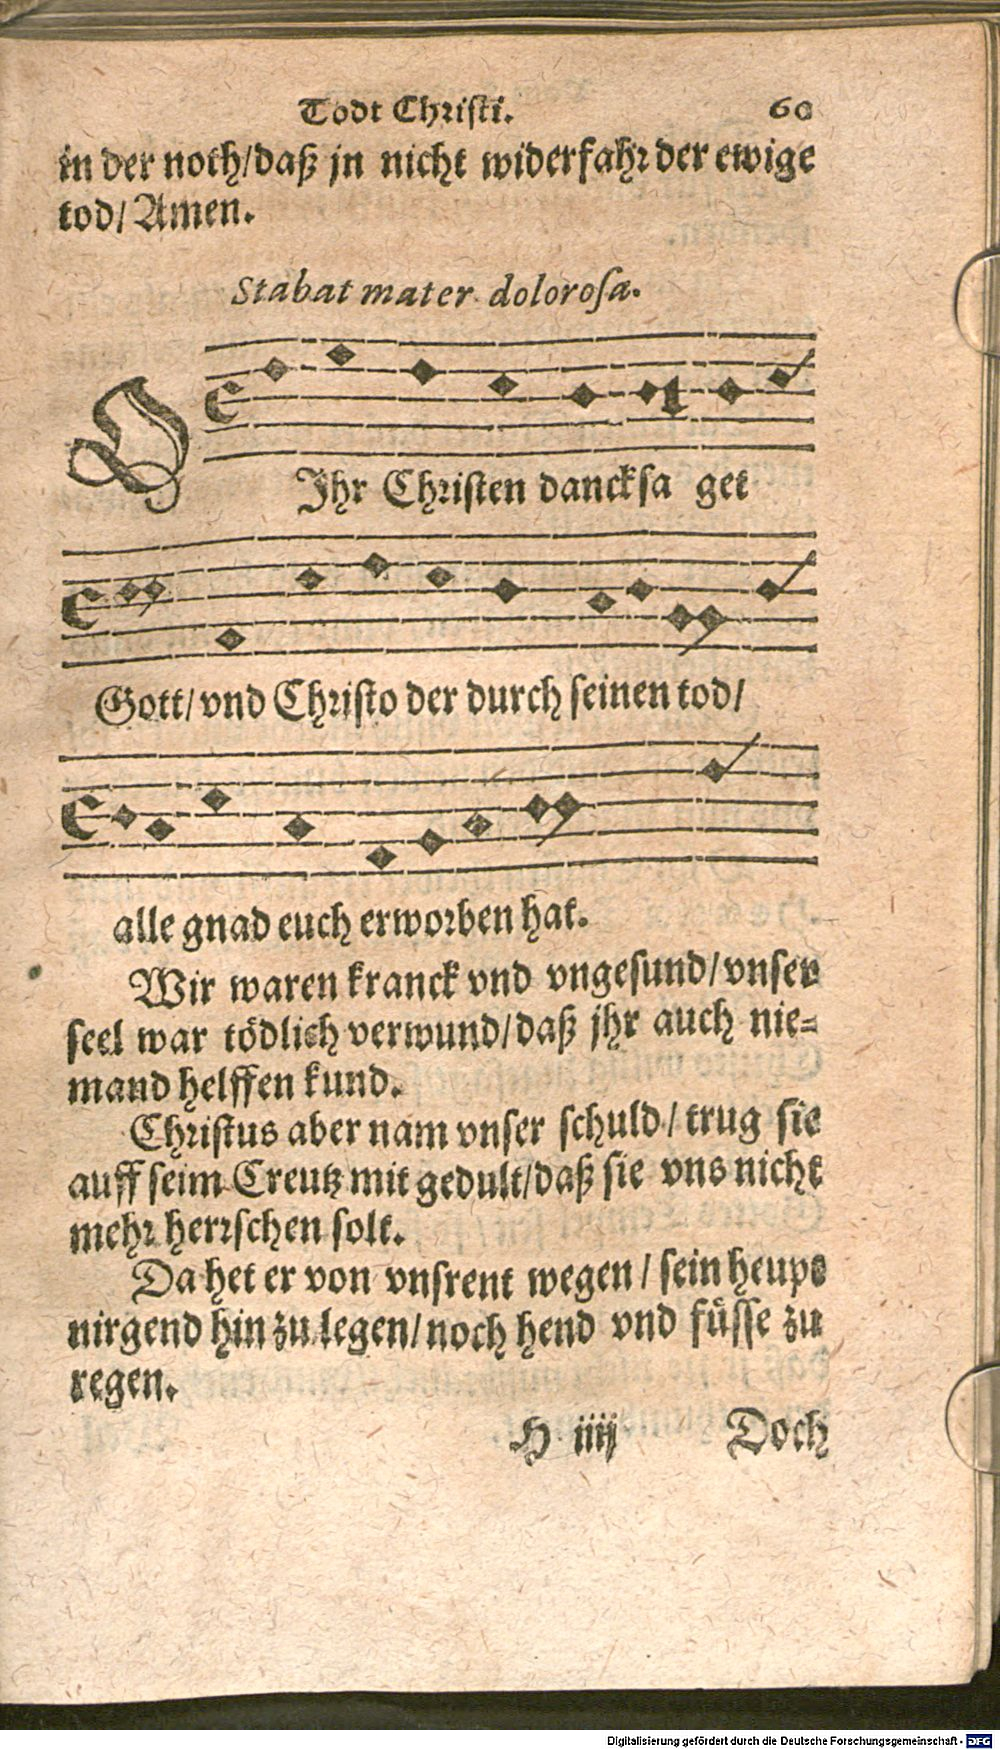 Todt Christi. 60
in der noth/daß jn nicht widerfahr der ewige
tod/ Amen.
Stabat mater dolorosa.
O
Ihr Christen dancksa get
Gott/ vnd Christo der durch seinen tod/
alle gnad euch erworben hat.
Wir waren kranck vnd vngesund/ vnser
seel war tödlich verwund/daß jhr auch nie=
mand helffen kund.
Christus aber nam vnser schuld/ trug sie
auff seim Creutz mit gedult/daß sie vns nicht
mehr herrschen solt.
Da het er von vnsrent wegen/ sein heupt
nirgend hin zu legen/noch hend vnd füsse zu
regen.
H iiij Doch
Digitalisierung gefördert durch die Deutsche Forschungsgemeinschaft - DFG